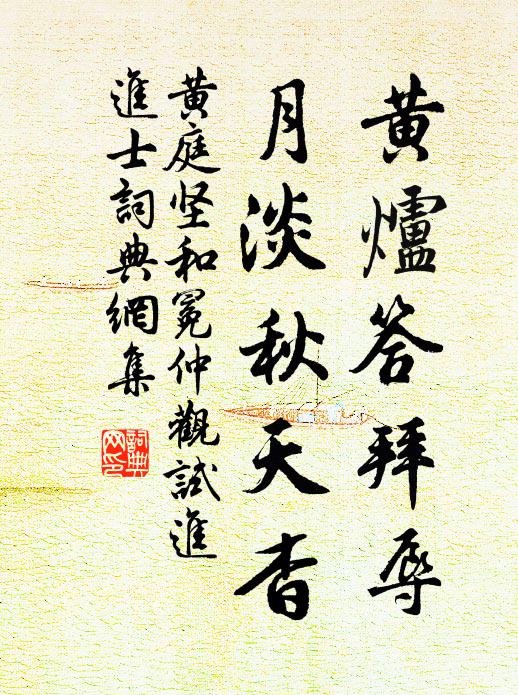 黃爐答拜辱
月淡秋天杳
黃庭坚和冕仲觀試進
進士詞典網集
詞典
网印